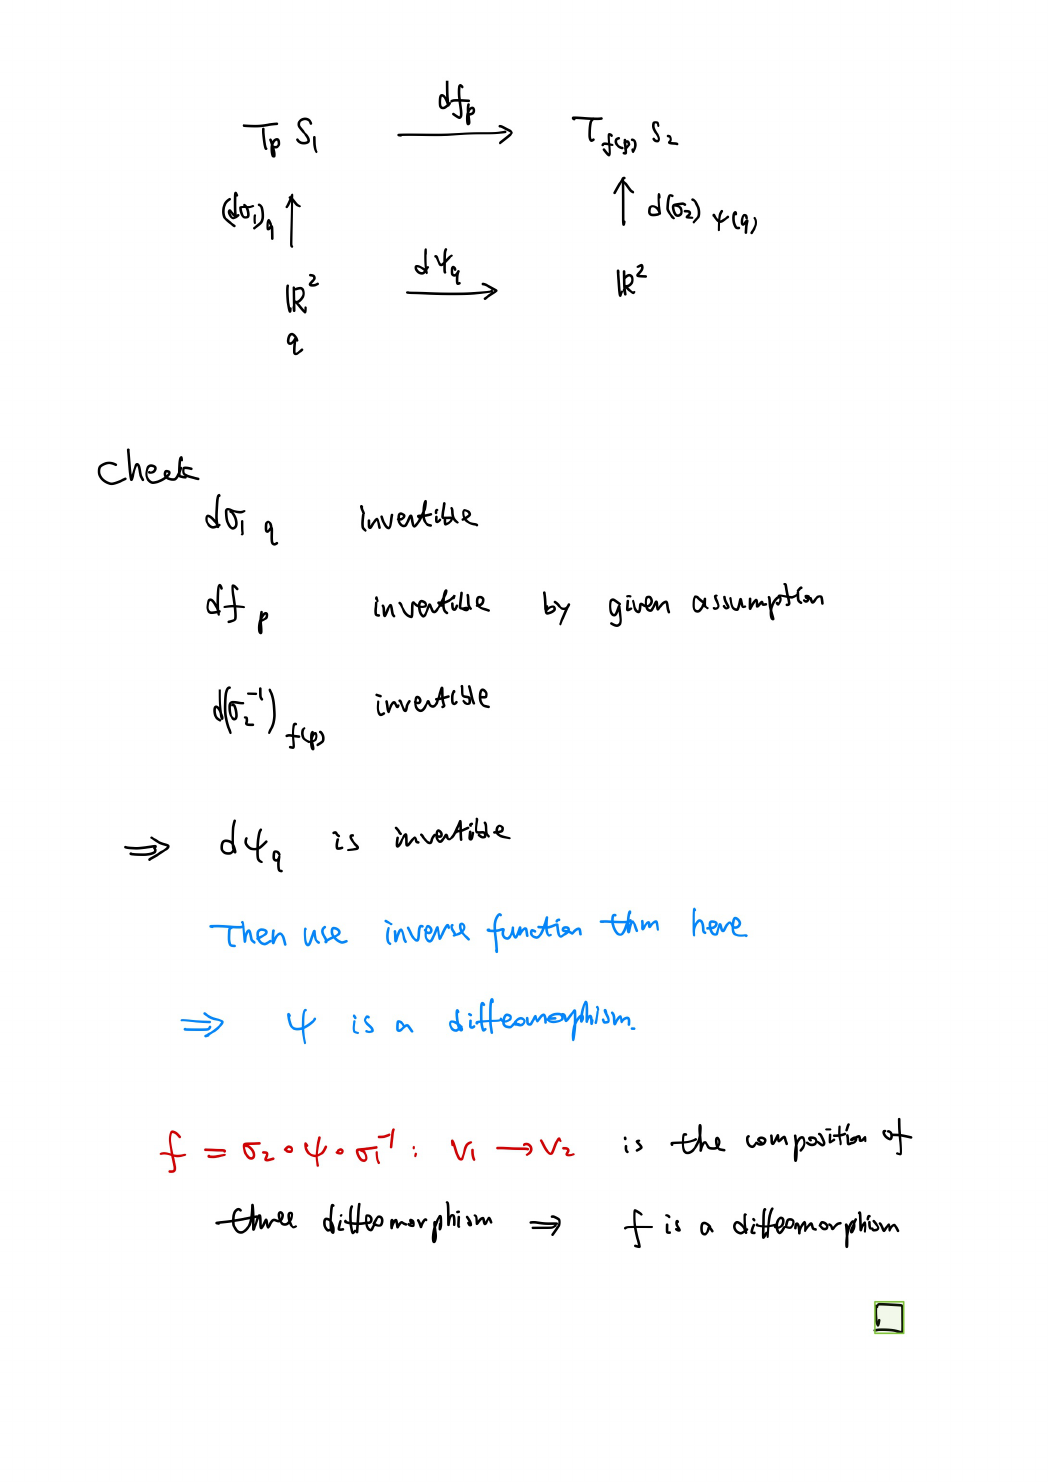 T_p S_1 df_p ⟶ T_{f(p)} S_2
(dσ_1)_q ↑ ↑ d(σ_2)_{ψ(q)}
ℝ^2 dψ_q ⟶ ℝ^2
q
Check
dσ_1 q invertible
df_p invertible by given assumption
d(σ_2^{-1})_{f(p)} invertible
⇒ dψ_q is invertible
Then use inverse function thm here
⇒ ψ is a diffeomorphism.
f = σ_2 ∘ ψ ∘ σ_1^{-1} : V_1 → V_2 is the composition of
three diffeomorphism ⇒ f is a diffeomorphism
□